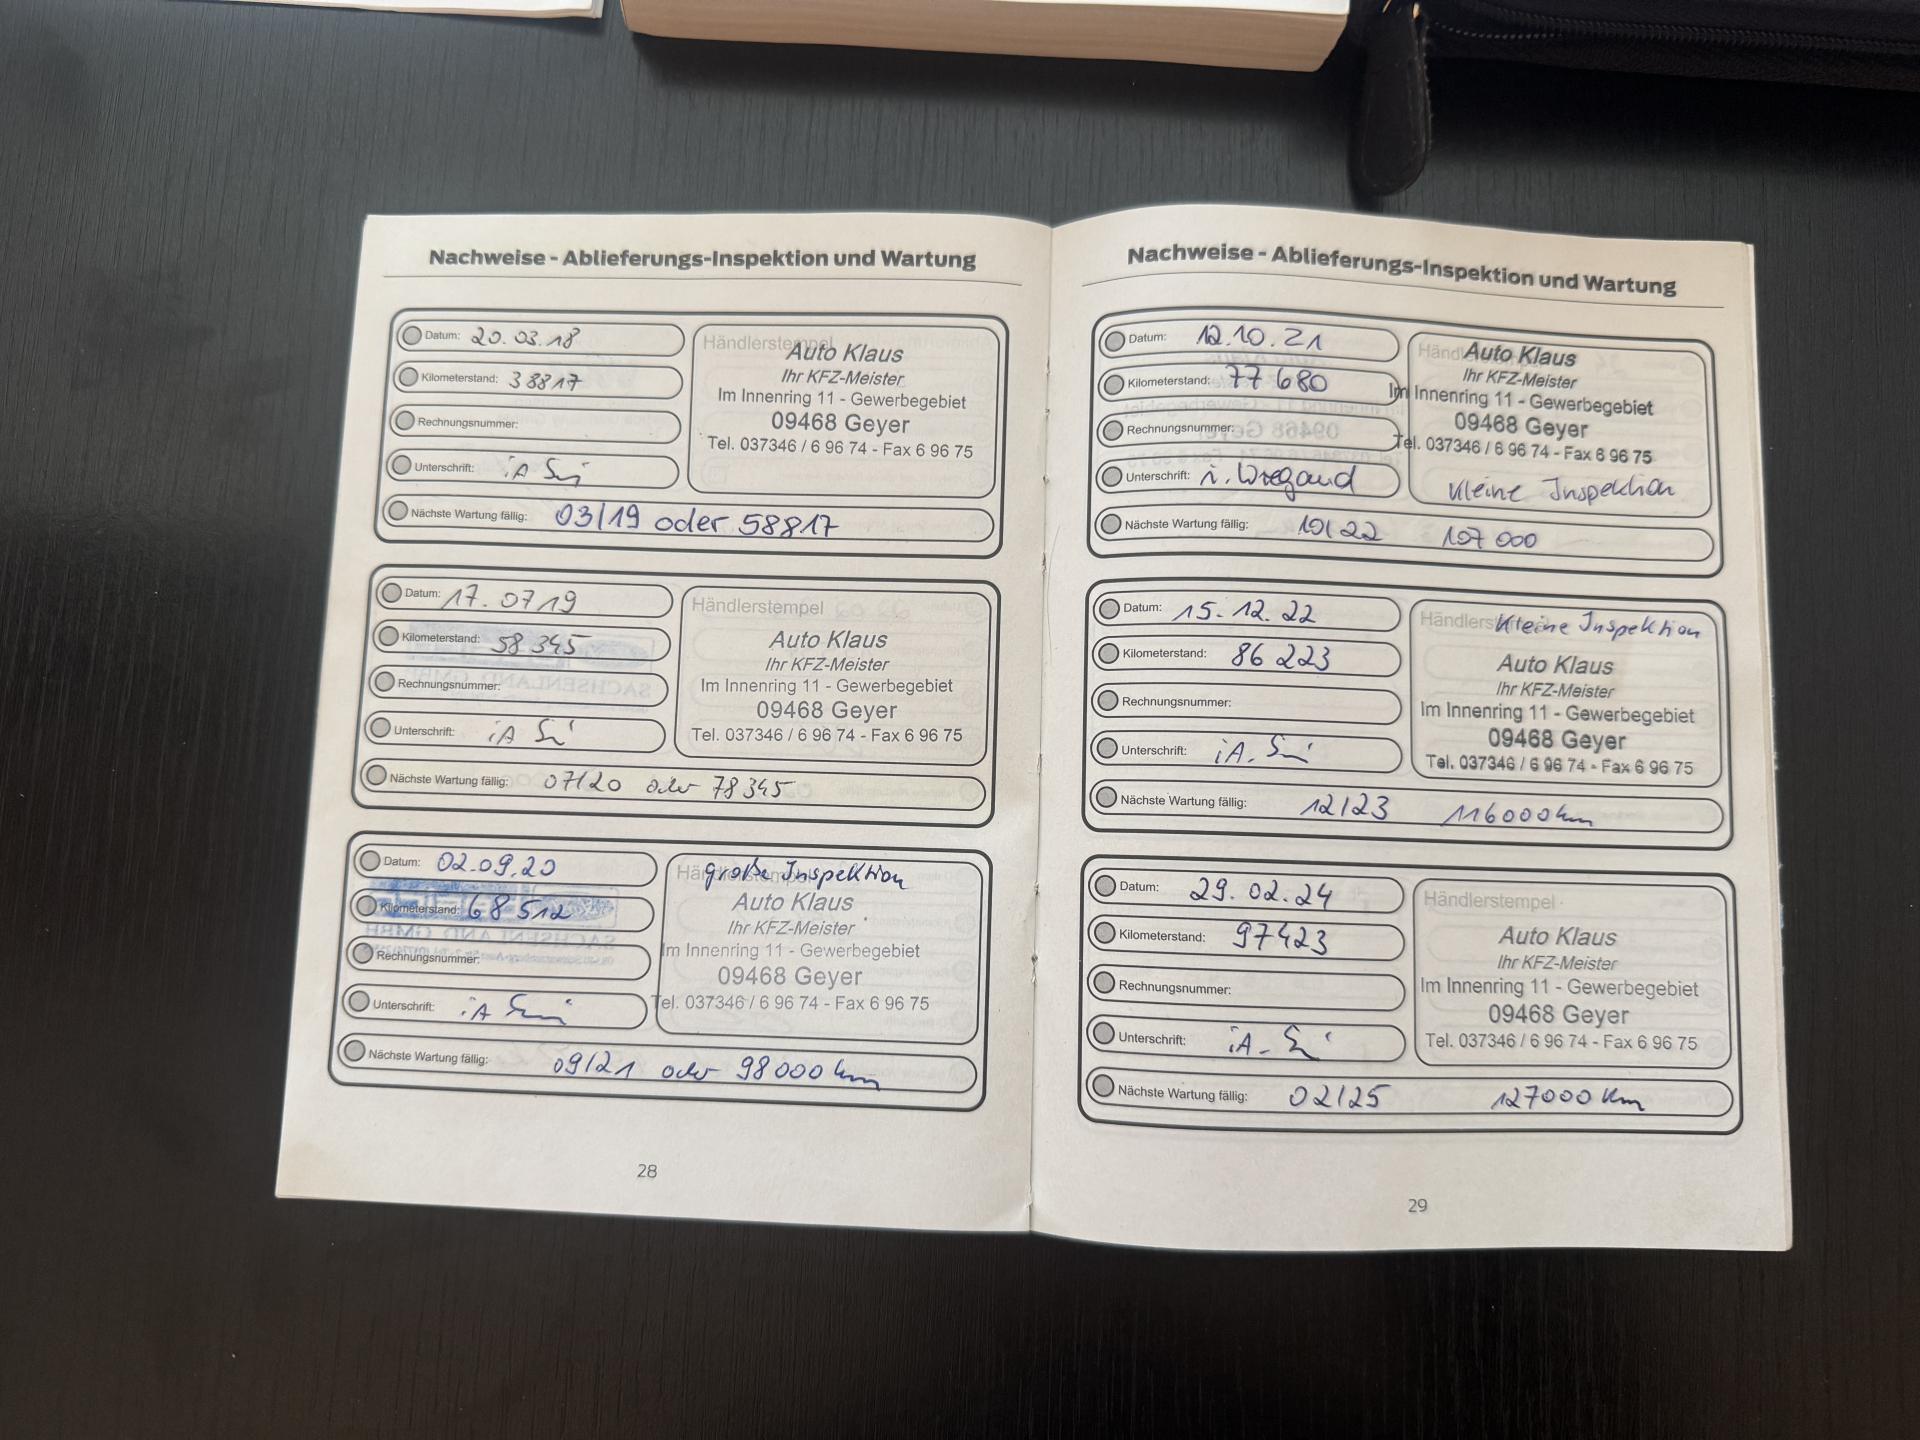 Nachweise - Ablieferungs-Inspektion und Wartung
Datum: 20.03.18
Kilometerstand: 38817
Rechnungsnummer:
Unterschrift: iA
Händlerstempel
Auto Klaus
Ihr KFZ-Meister
Im Innenring 11 - Gewerbegebiet
09468 Geyer
Tel. 037346 / 6 96 74 - Fax 6 96 75
Nächste Wartung fällig: 03/19 oder 58817
Datum: 17.07.19
Kilometerstand: 58345
Rechnungsnummer:
Unterschrift: iA
Händlerstempel
Auto Klaus
Ihr KFZ-Meister
Im Innenring 11 - Gewerbegebiet
09468 Geyer
Tel. 037346 / 6 96 74 - Fax 6 96 75
Nächste Wartung fällig: 07/20 oder 78345
Datum: 02.09.20
Kilometerstand: 68512
Rechnungsnummer:
Unterschrift: iA
Händlerstempel
große Inspektion
Auto Klaus
Ihr KFZ-Meister
Im Innenring 11 - Gewerbegebiet
09468 Geyer
Tel. 037346 / 6 96 74 - Fax 6 96 75
Nächste Wartung fällig: 09/21 oder 98000 km
28
Nachweise - Ablieferungs-Inspektion und Wartung
Datum: 12.10.21
Kilometerstand: 77 680
Rechnungsnummer:
Unterschrift: i. Wiegand
Auto Klaus
Ihr KFZ-Meister
Im Innenring 11 - Gewerbegebiet
09468 Geyer
Tel. 037346 / 6 96 74 - Fax 6 96 75
Kleine Inspektion
Nächste Wartung fällig: 10/22 107 000
Datum: 15.12.22
Kilometerstand: 86 223
Rechnungsnummer:
Unterschrift: iA.
Kleine Inspektion
Auto Klaus
Ihr KFZ-Meister
Im Innenring 11 - Gewerbegebiet
09468 Geyer
Tel. 037346 / 6 96 74 - Fax 6 96 75
Nächste Wartung fällig: 12/23 116000km
Datum: 29.02.24
Kilometerstand: 97423
Rechnungsnummer:
Unterschrift: iA.
Händlerstempel
Auto Klaus
Ihr KFZ-Meister
Im Innenring 11 - Gewerbegebiet
09468 Geyer
Tel. 037346 / 6 96 74 - Fax 6 96 75
Nächste Wartung fällig: 02/25 127000 Km
29